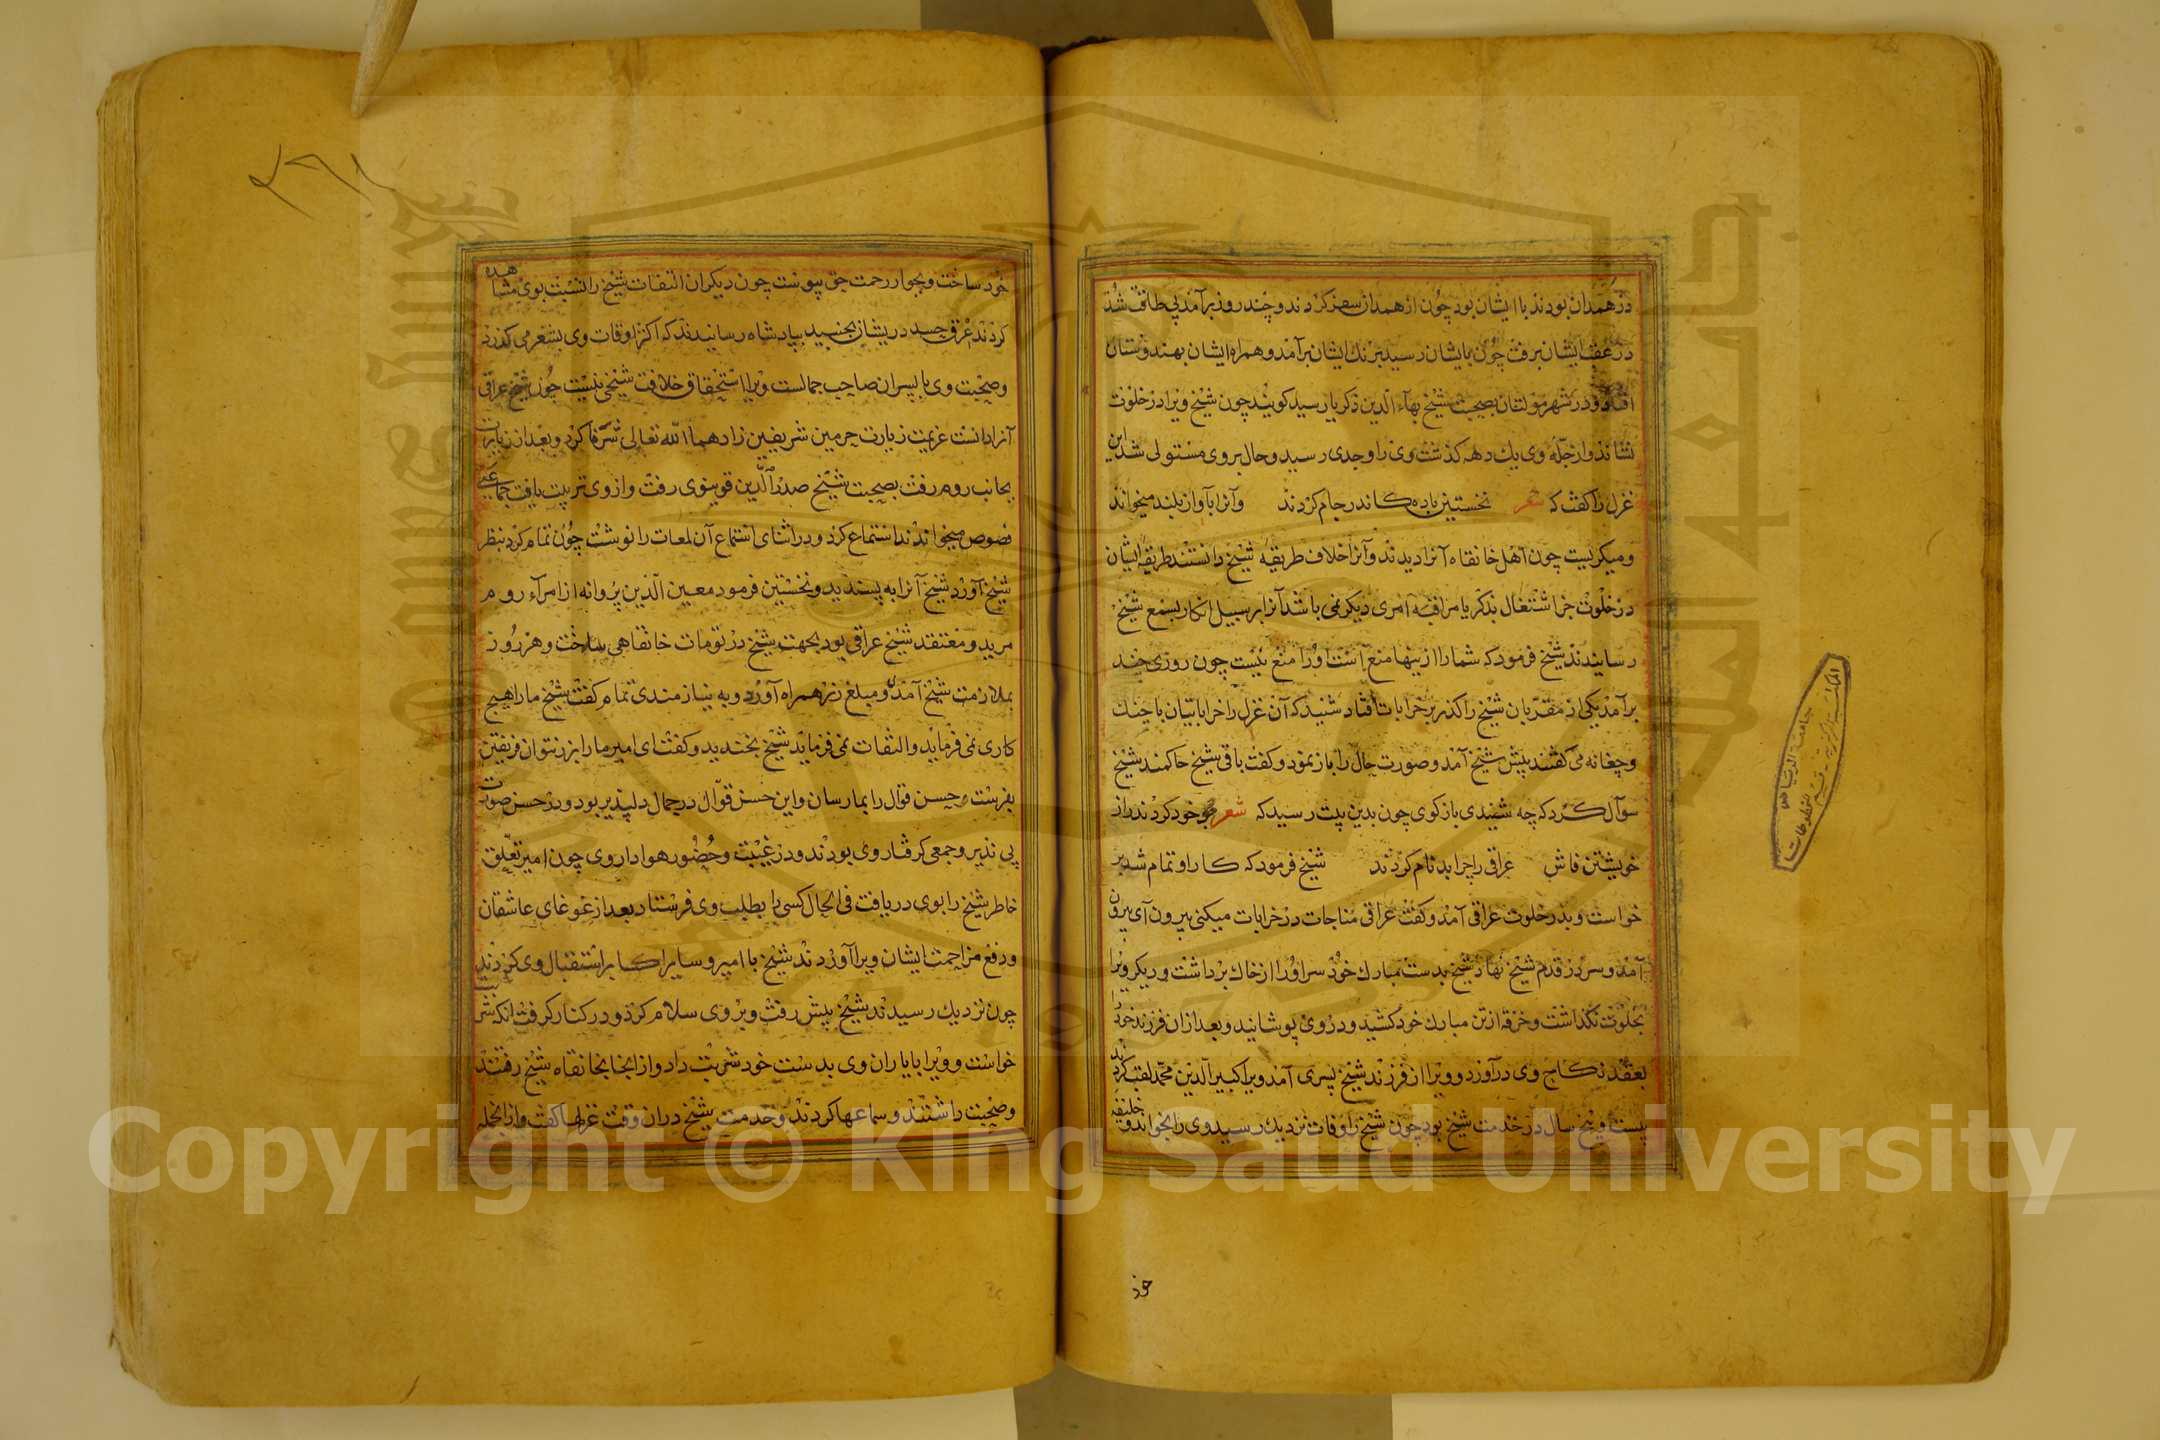 در همدان بودند با ایشان بود چون از همدان سفر کردند و چند روز برآمد بی طاقت شد
در عقب ایشان برفت چون بایشان رسید برنك ایشان برآمد و همراه ایشان بهندوستان
افتاد و در شهر مولتان بصحبت شیخ بهآء الدین ذکریا رسید کویند چون شیخ ویرا در خلوت
نشاند و از چلهٔ وی یك دهه کذشت وی را وجدی رسید و حال بر وی مستولی شد این
غزل را کفت که شعر نخستین باده کاندر جام کردند وآنرا بآواز بلند میخواند
و میکریست چون اهل خانقاه آنرا دیدند وآنرا خلاف طریقهٔ شیخ دانستند طریقهٔ ایشان
در خلوت جز اشتغال بذکر یا مراقبه امری دیکر نمی باشد آنرا بر سبیل انکار بسمع شیخ
رسانیدند شیخ فرمود که شما را از ینها منع است او را منع نیست چون روزی چند
برآمد یکی از مقربان شیخ را کذر بر خرابات افتاد شنید که آن غزل را خراباتیان با چنك
و چغانه می کفتند پیش شیخ آمد و صورت حال را باز نمود و کفت باقی شیخ حاکمند شیخ
سوآل کرد که چه شنیدی باز کوی چون بدین بیت رسید که شعر چو خود کردند راز
خویشتن فاش عراقی را چرا بدنام کردند شیخ فرمود که کار او تمام شد بر
خواست و بدر خلوت عراقی آمد و کفت عراقی مناجات در خرابات میکنی بیرون آی بیرون
آمد و سر در قدم شیخ نهاد شیخ بدست مبارك خود سر او را از خاك برداشت و دیکر ویرا
بخلوت نکذاشت و خرقه از تن مبارك خود کشید و در وی پوشانید و بعد ازان فرزند خود را
بعقد نکاح وی درآورد و ویرا از فرزند شیخ پسری آمد ویرا کبیر الدین محمد لقب کردند
بیست و پنج سال در خدمت شیخ بود چون شیخ را وفات نزدیك رسید وی را بخواند و خلیفهٔ
خود
جامعة الرياض
المكتبة المركزية - قسم المخطوطات
خود ساخت و بجوار رحمت حق پیوست چون دیکران التفات شیخ را نسبت بوی مشاهده
کردند عرق حسد در یشان بجنبید بپادشاه رسانیدند که اکثر اوقات وی بشعر می کذرد
و صحبت وی با پسران صاحب جمالست ویرا استحقاق خلافت شیخی نیست چون شیخ عراقی
آنرا دانست عزیمت زیارت حرمین شریفین زادهما الله تعالی شرفا کرد و بعد از زیارت
بجانب روم رفت بصحبت شیخ صدر الدین قونوی رفت و از وی تربیت یافت جماعتی
فصوص میخواندند استماع کرد و در اثنای استماع آن لمعات را نوشت چون تمام کرد بنظر
شیخ آورد شیخ آنرا به پسندید و تحسین فرمود معین الدین پروانه از امرآء روم
مرید و معتقد شیخ عراقی بود بجهت شیخ در توقات خانقاهی ساخت و هر روز
بملازمت شیخ آمد و مبلغ زر همراه آورد و به نیازمندی تمام کفت شیخ ما را هیچ
کاری نمی فرماید و التفات نمی فرماید شیخ بخندید و کفت ای امیر ما را بزر نتوان فریفتن
بفرست و حسن قوال را بما رسان و این حسن قوال در جمال دلپذیر بود و در حسن صوت
بی نذیر و جمعی کرفتار وی بودند و در غیبت و حضور هوادار وی چون امیر تعلق
خاطر شیخ را بوی دریافت فی الحال کسی را بطلب وی فرستاد بعد از غوغای عاشقان
و دفع مزاحمت ایشان ویرا آوردند شیخ با امیر و سایر اکابر استقبال وی کردند
چون نزدیك رسیدند شیخ پیش رفت و بر وی سلام کرد و در کنار کرفت انکه شربت
خواست و ویرا با یاران وی بدست خود شربت داد و از انجا بخانقاه شیخ رفتند
و صحبت داشتند و سماعها کردند و خدمت شیخ دران وقت غزلها کفت و از انجمله
Copyright © King Saud University